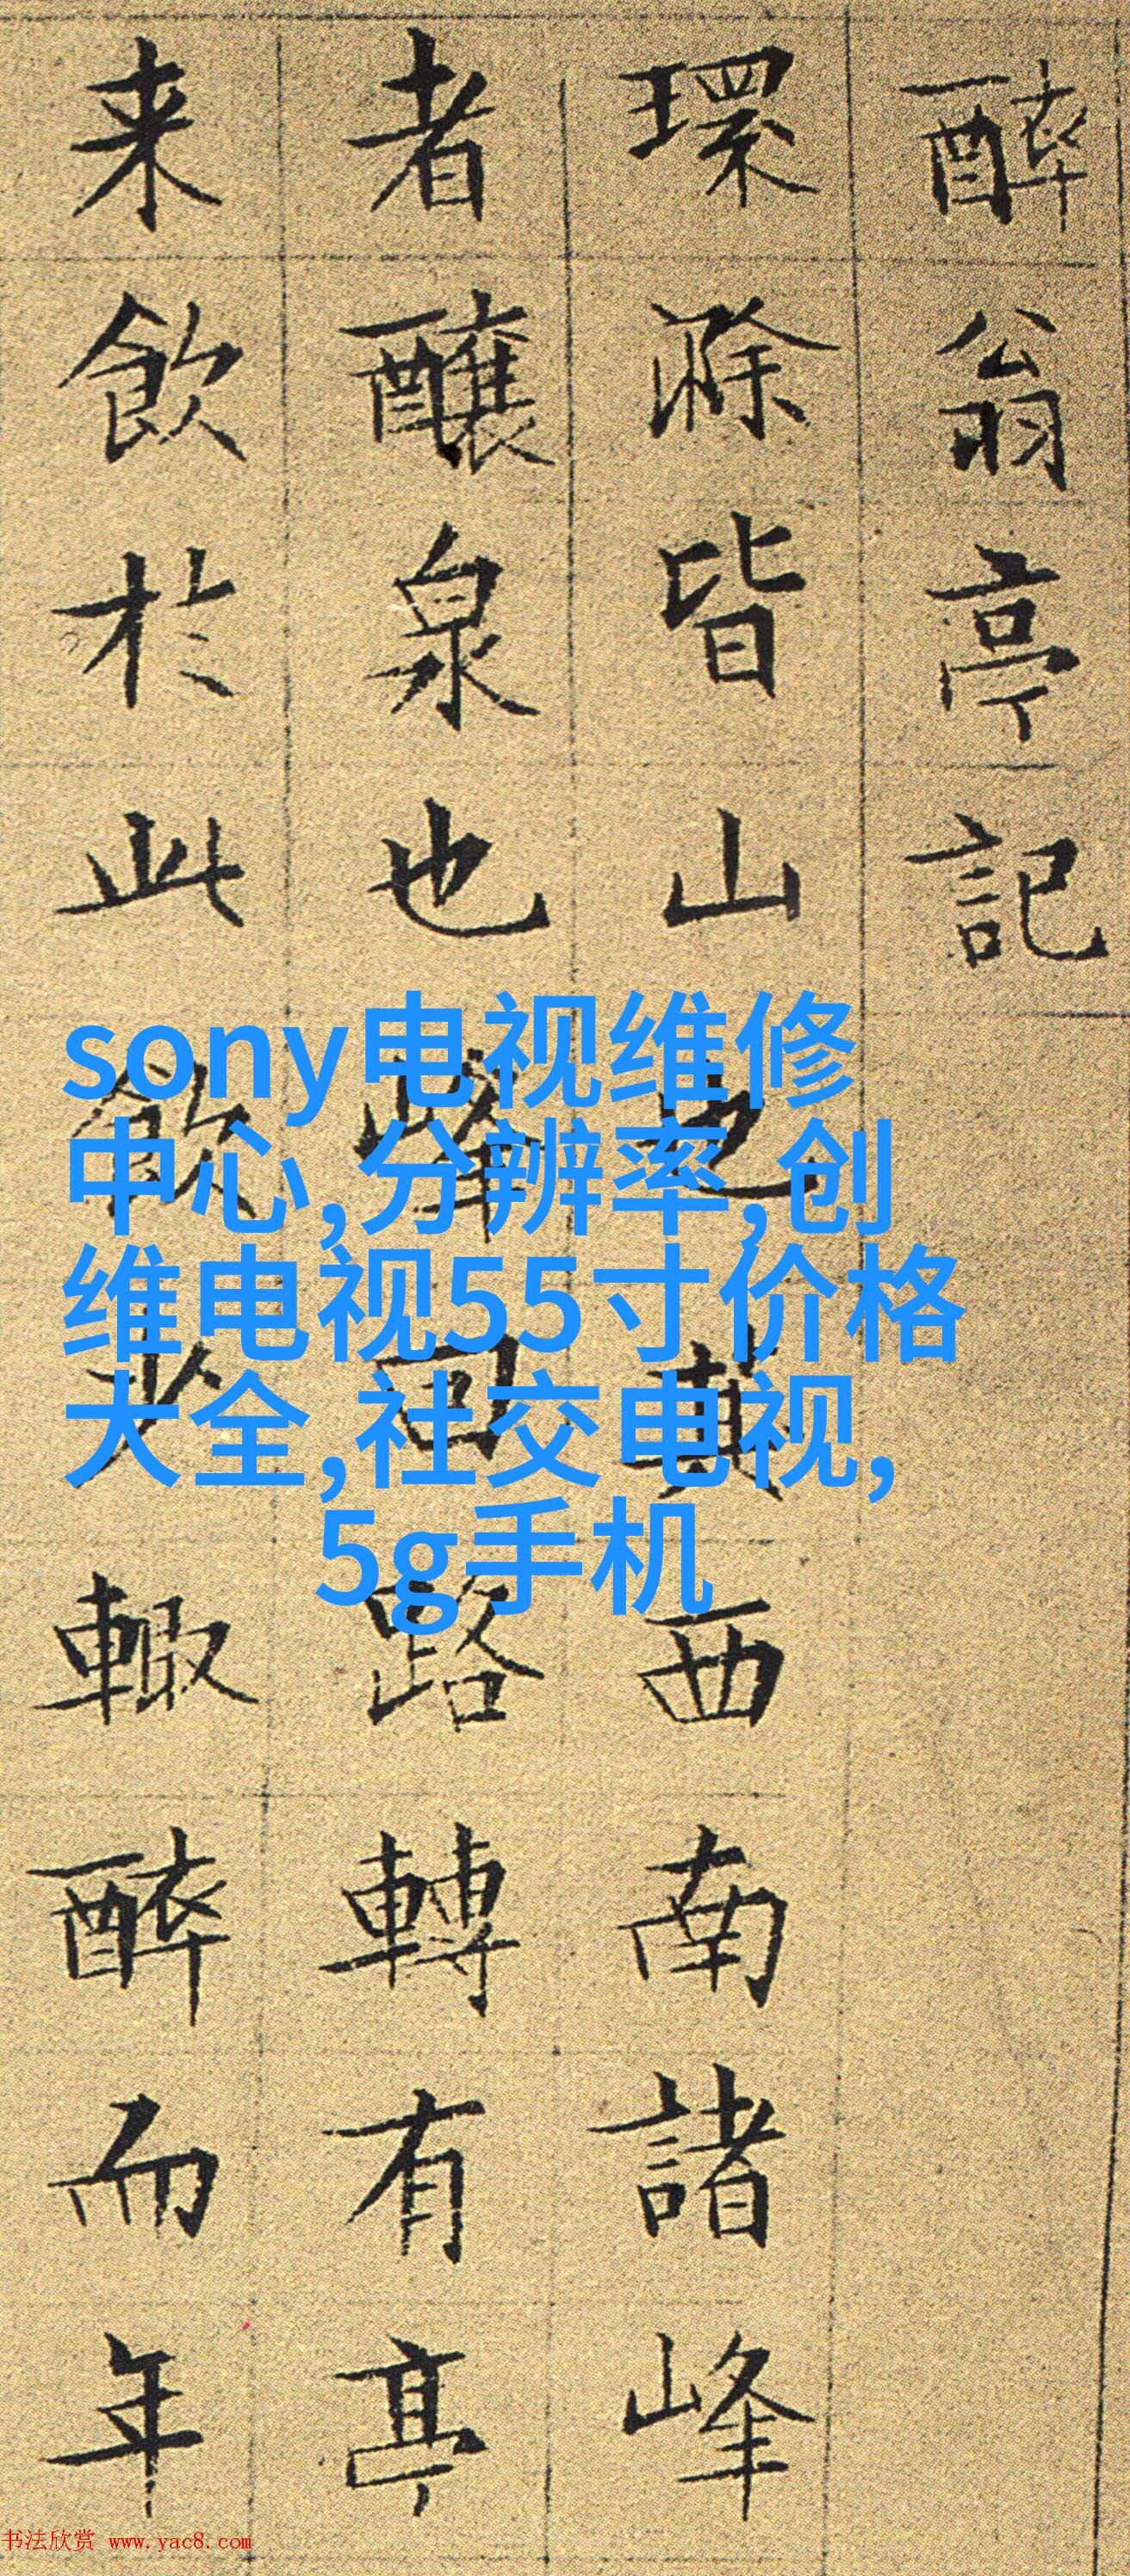 醉翁亭記
環滁皆山也其西南諸峰
者釀泉也峰回路轉有亭
来飲於此飲少輒醉而年
sony电视维修
中心,分辨率,创
维电视55寸价格
大全,社交电视,
5g手机
书法欣赏 www.yac8.com